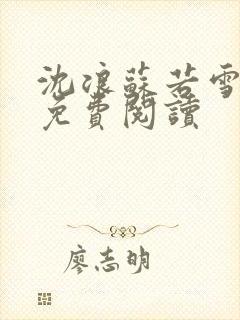 沈浪蘇若雪
免費閱讀
廖志明